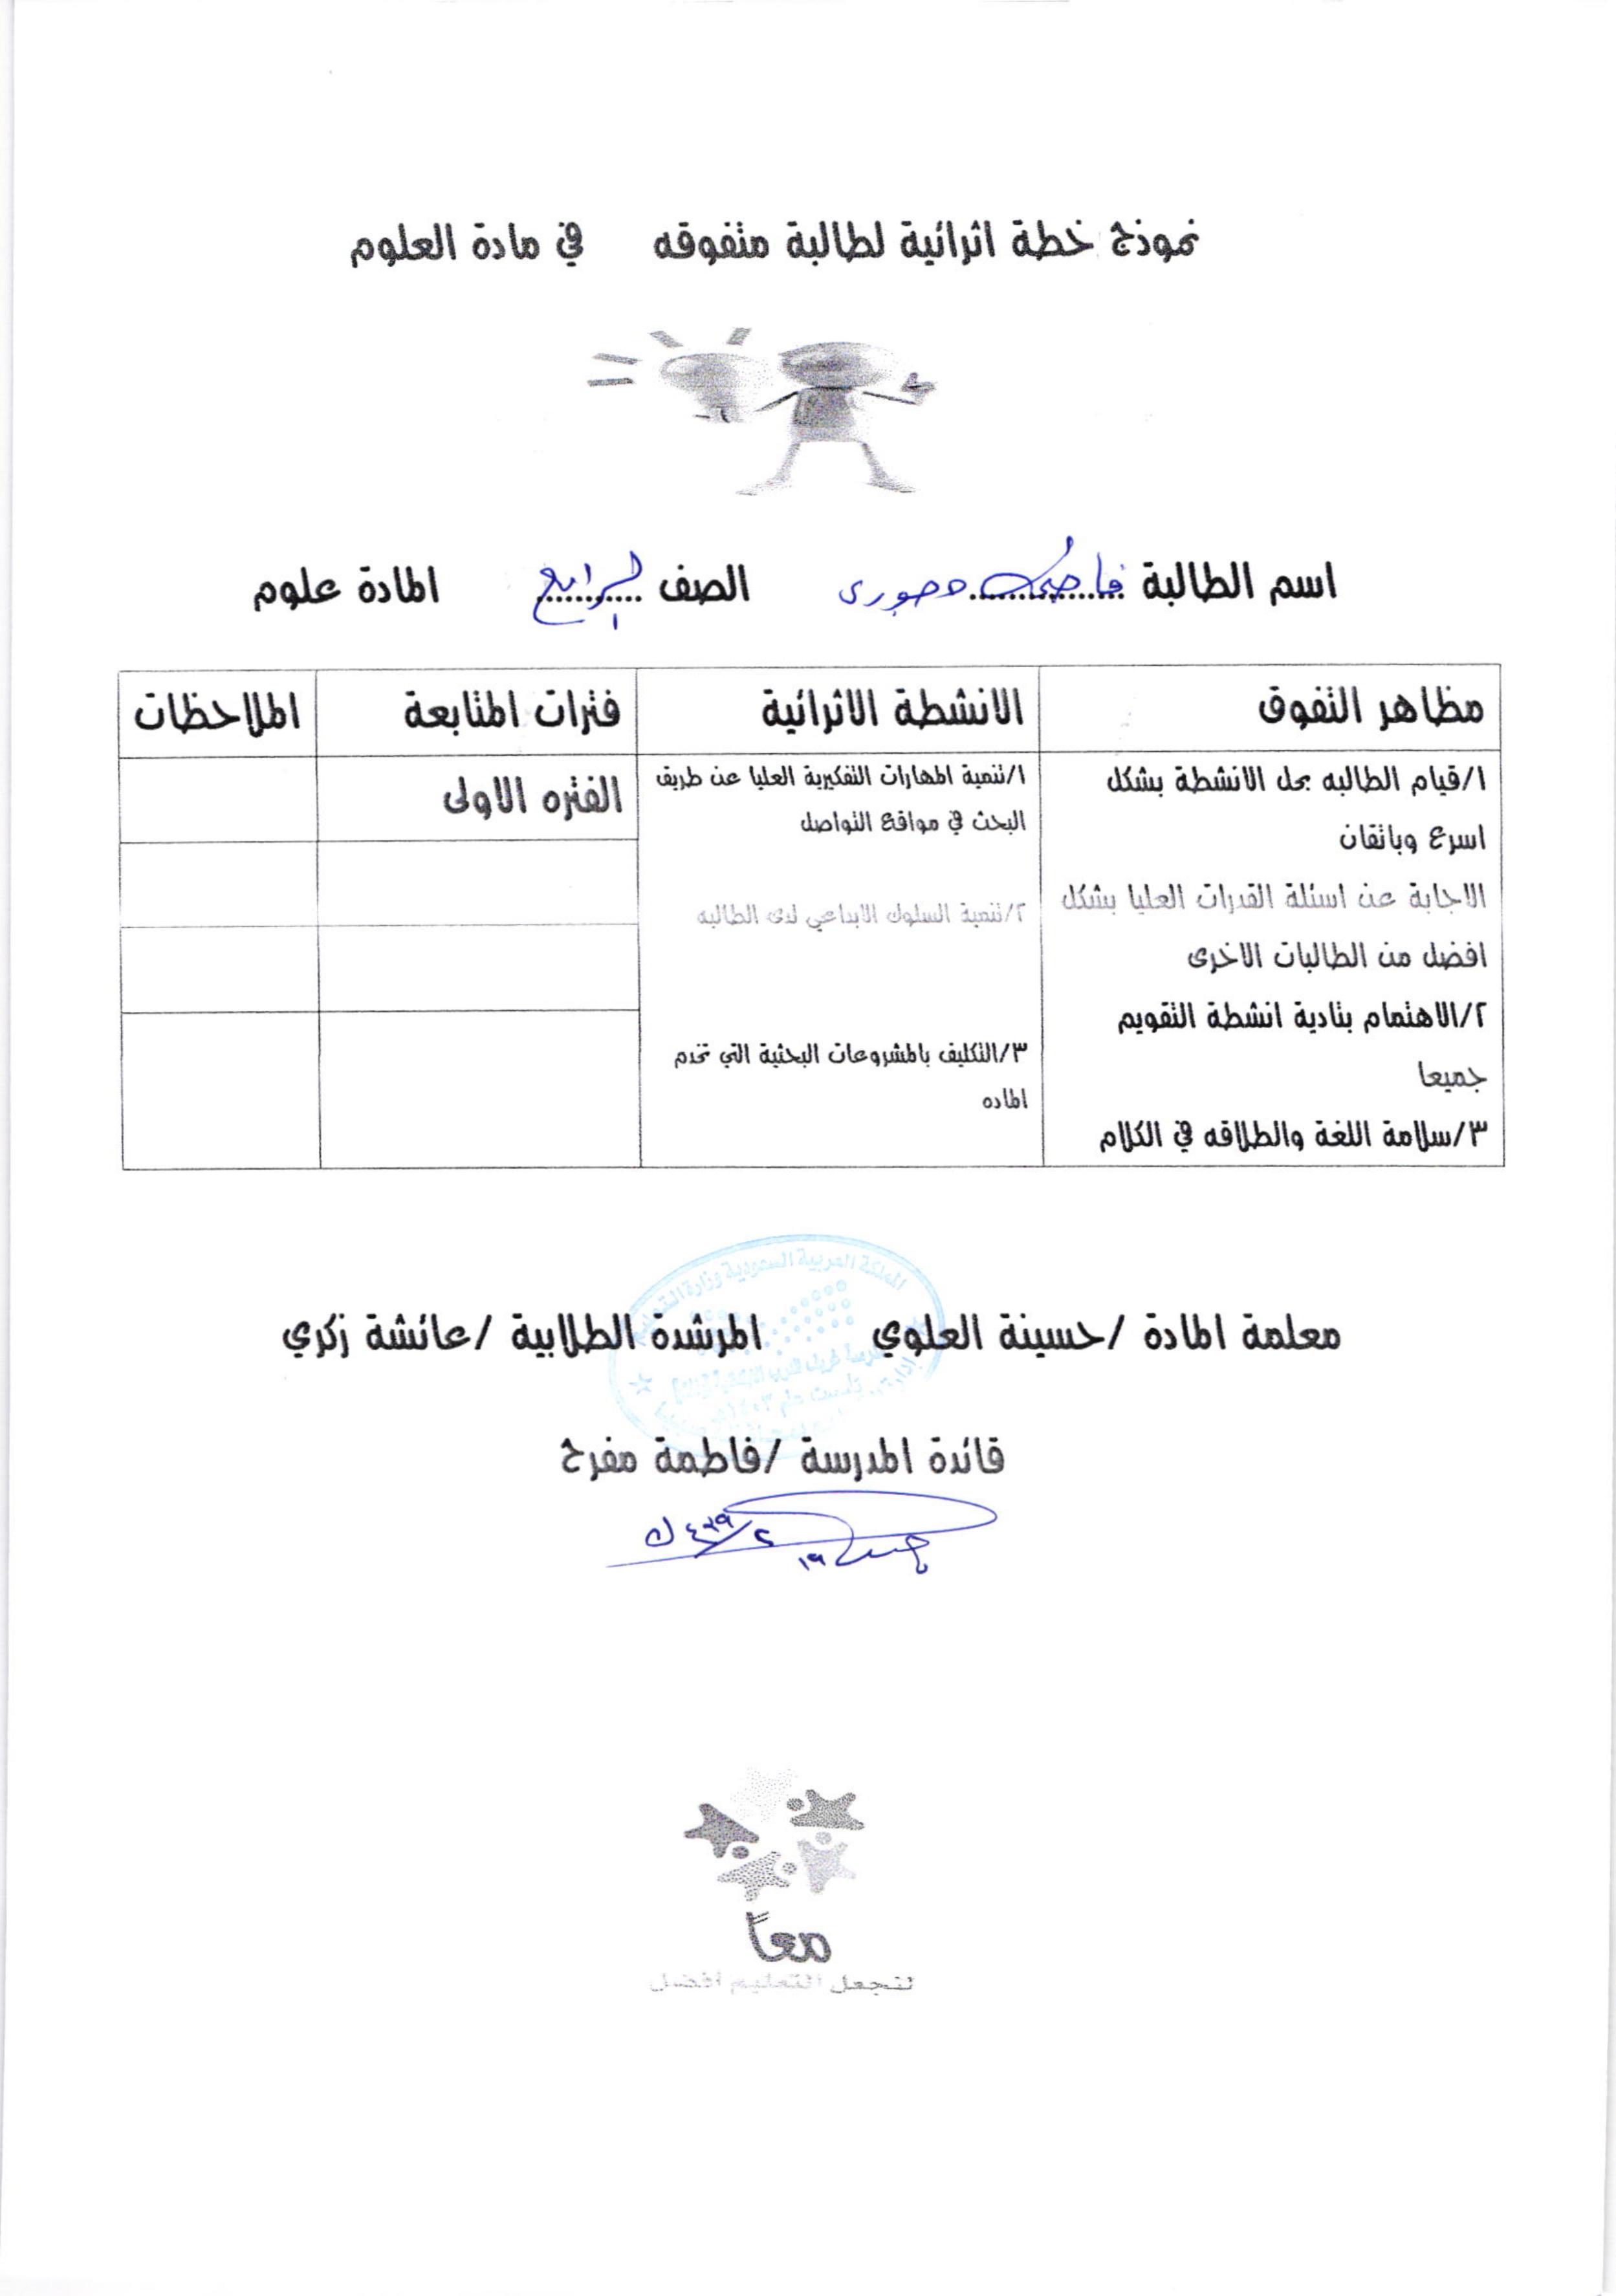 نموذج خطة اثرائية لطالبة متفوقه في مادة العلوم
اسم الطالبة ................ الصف الرابع المادة علوم
مظاهر التفوق الانشطة الاثرائية فترات المتابعة الملاحظات
١/قيام الطالبه بحل الانشطة بشكل
اسرع وباتقان
الاجابة عن اسئلة القدرات العليا بشكل
افضل من الطالبات الاخرى
٢/الاهتمام بتادية انشطة التقويم
جميعا
٣/سلامة اللغة والطلاقه في الكلام
١/تنمية المهارات التفكيرية العليا عن طريق
البحث في مواقع التواصل
٢/تنمية السلوك الابداعي لدى الطالبه
٣/التكليف بالمشروعات البحثية التي تخدم
الماده
الفتره الاولى
المملكة العربية السعودية وزارة التعليم
معلمة المادة /حسينة العلوي المرشدة الطلابية /عائشة زكري
قائدة المدرسة /فاطمة مفرح
معاً
لنجعل التعليم افضل